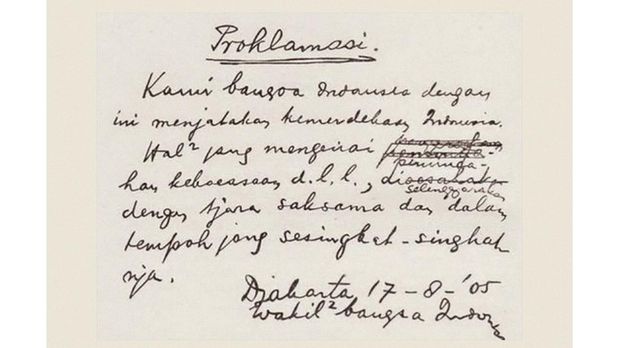 Proklamasi.
Kami bangsa Indonesia dengan
ini menjatakan kemerdekaan Indonesia.
Hal² jang mengenai peminda-
han kekoeasaan d.l.l., diselenggarakan
dengan tjara saksama dan dalam
tempoh jang sesingkat-singkat
nja.
Djakarta, 17 - 8 - '05
Wakil² bangsa Indonesia